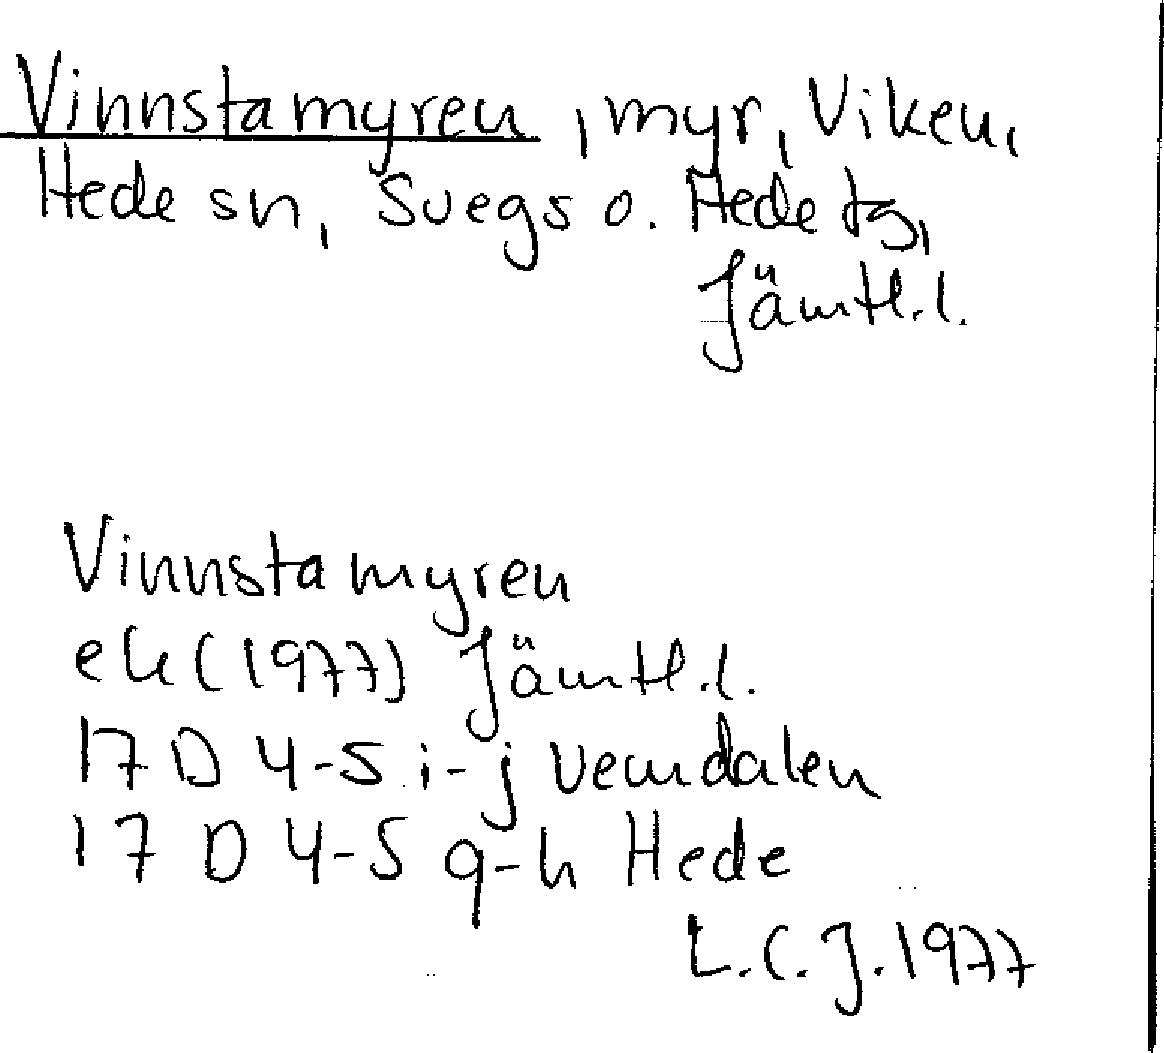 Vinnstamyren, myr, Viken,
Hede sn, Svegs o. Hede tg,
Jämtl.l.
Vinnstamyren
ek (1977) Jämtl.l.
17 D 4-5 i-j Vemdalen
17 D 4-5 g-h Hede
L.C.J. 1977